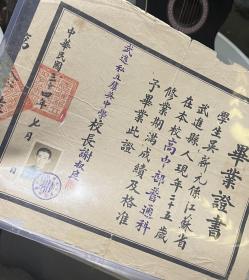 畢業證書
學生吳新九係江蘇省
武進縣人現年二十五歲
在本校高中部普通科
修業期滿成績及格准
予畢業此證
武進私立群英中學校長謝
中華民國三十四年七月 日